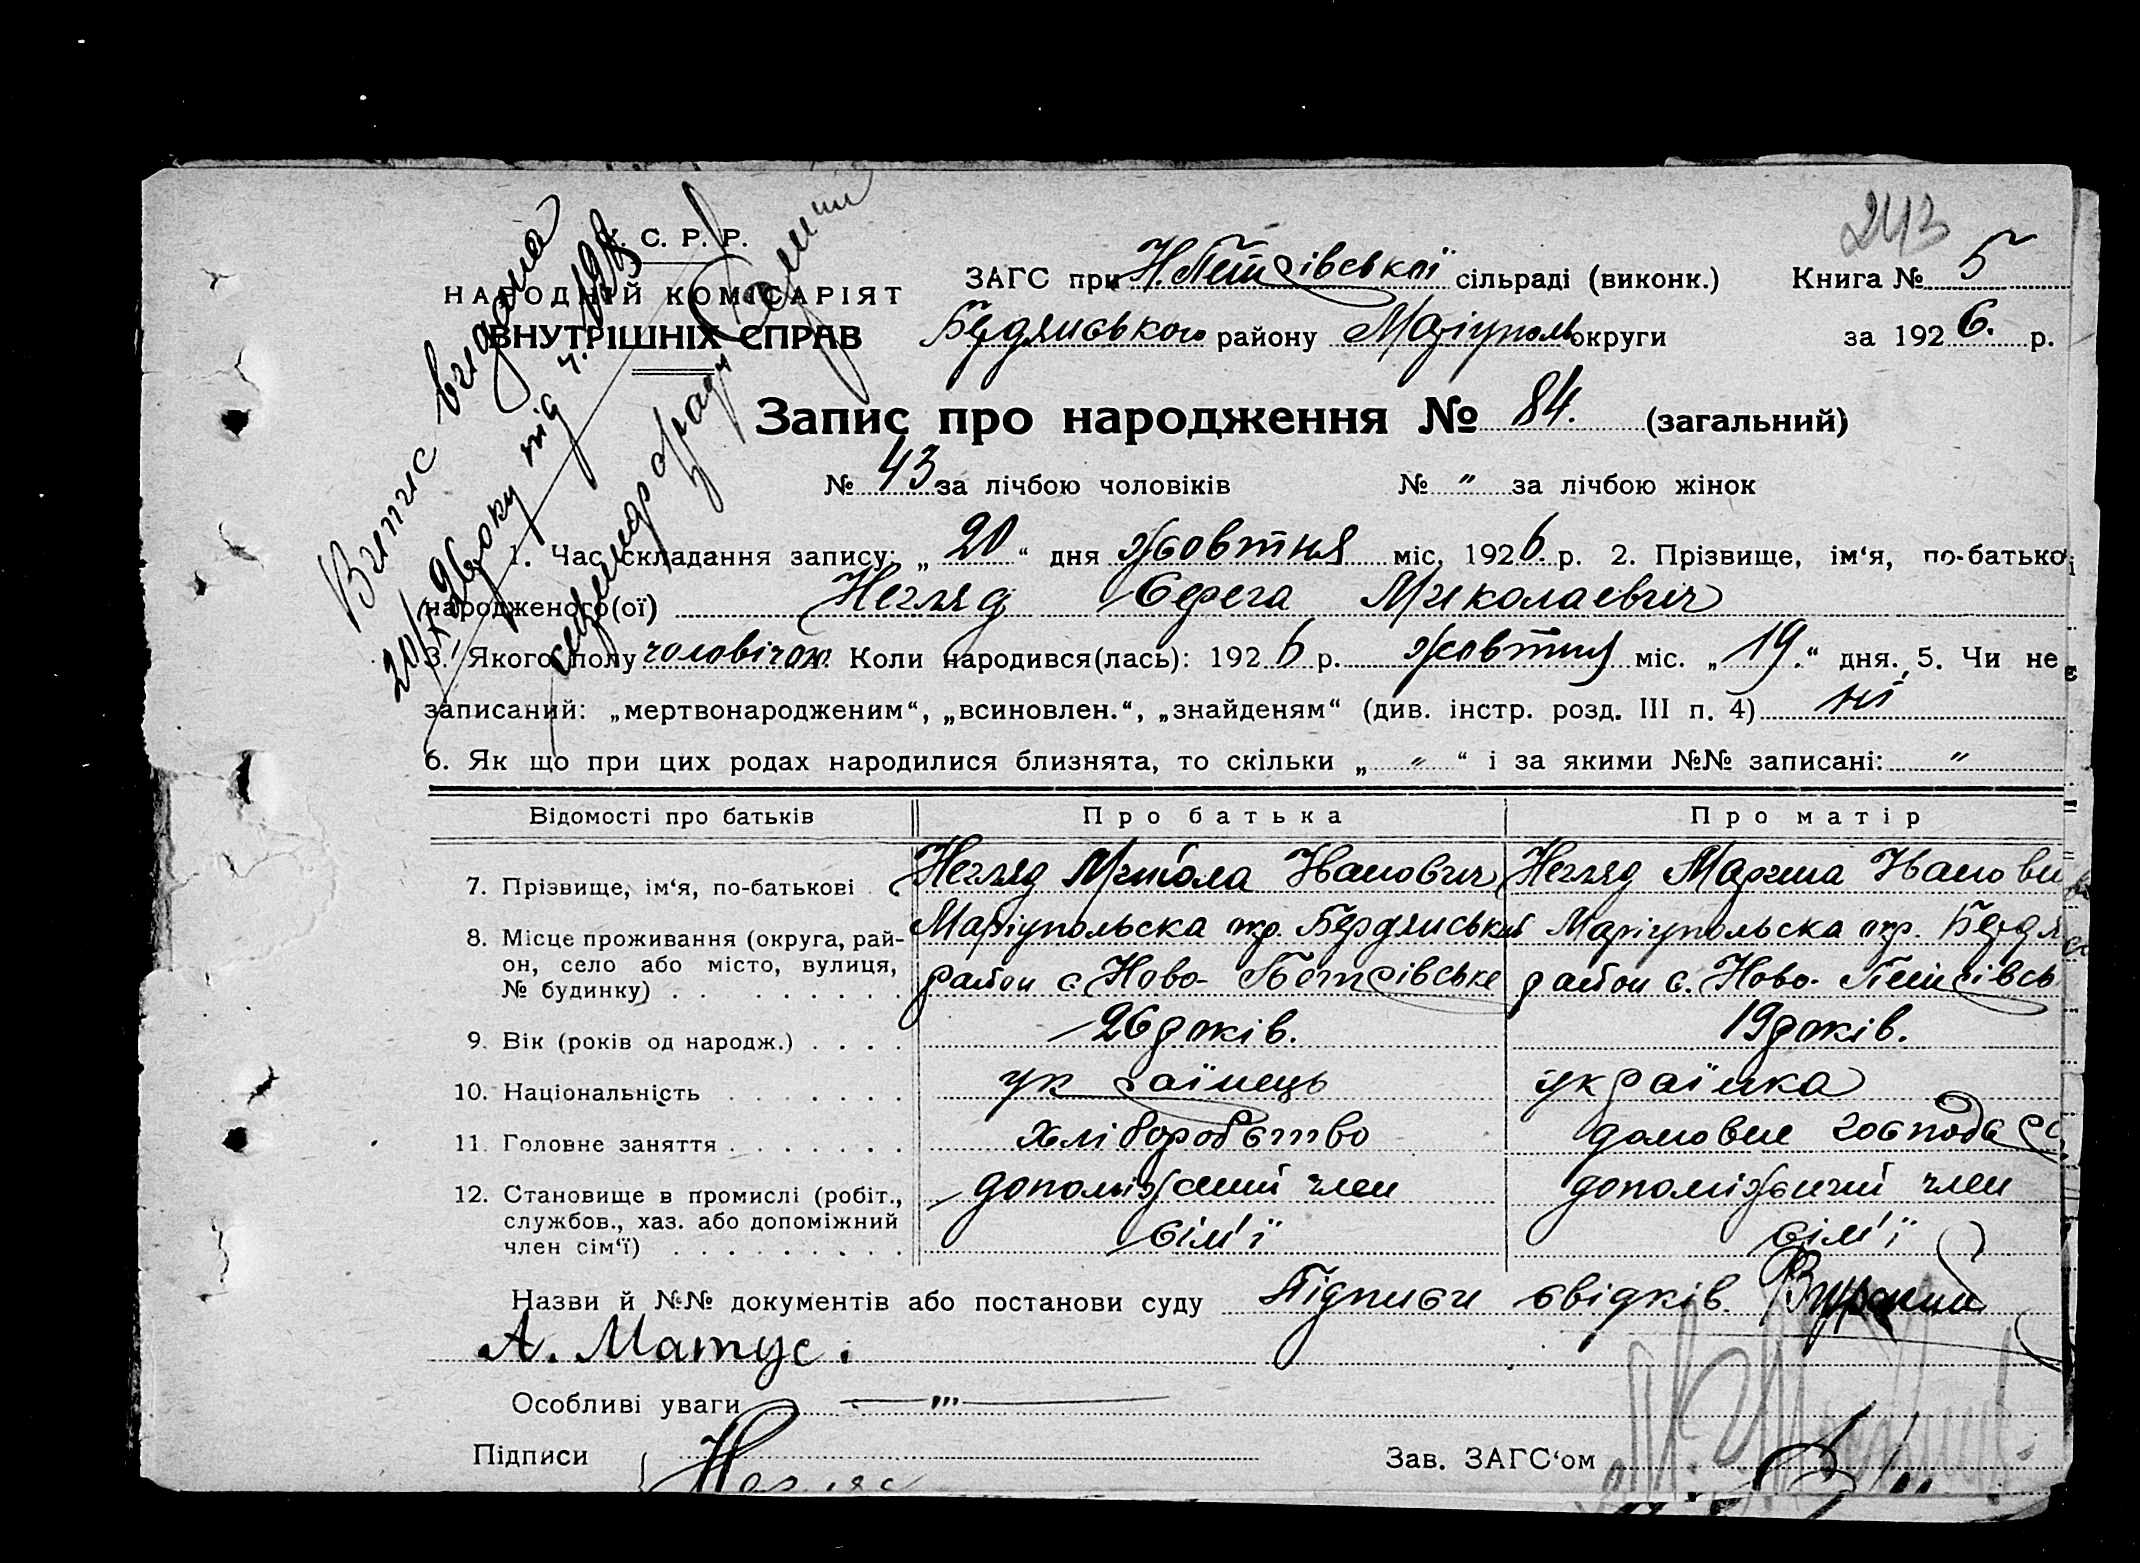 243
У. С. Р. Р.
НАРОДНІЙ КОМІСАРІЯТ
ВНУТРІШНІХ СПРАВ
ЗАГС при Н. Петрівській сільраді (виконк.) Книга № 5
Бердянського району Маріуполь округи за 1926. р.
Витис видана
20/X 26 року під ч. 198
секретар сільради
Запис про народження № 84. (загальний)
№ 43 за лічбою чоловіків № " за лічбою жінок
1. Час складання запису: „20“ дня жовтня міс. 1926 р. 2. Прізвище, ім‘я, по-батькові
народженого(ої) Негляд Серега Миколаевич
3. Якого полу чоловічок 4. Коли народився(лась): 1926 р. жовтня міс. „19.“ дня. 5. Чи не є
записаний: „мертвонародженим“, „всиновлен.“, „знайденям“ (див. інстр. розд. III п. 4) ні
6. Як що при цих родах народилися близнята, то скільки „ " “ і за якими №№ записані: "
Відомості про батьків Про батька Про матір
7. Прізвище, ім‘я, по-батькові Негляд Микола Іванович Негляд Мариа Івановн
8. Місце проживання (округа, рай- Маріупольска окр. Бердянський Маріупольска окр. Бердян
он, село або місто, вулиця, район с. Ново-Петрівське район с. Ново-Петрівсь
№ будинку)
9. Вік (років од народж.) 26 років. 19 років.
10. Національність українець українка
11. Головне заняття хліборобство домовне господа
12. Становище в промислі (робіт., допоміжний член допоміжний член
службов., хаз. або допоміжний сім'ї сім'ї
член сім‘ї)
Назви й №№ документів або постанови суду Підписи свідків
А. Матус.
Особливі уваги "'
Підписи Негляд Зав. ЗАГС‘ом